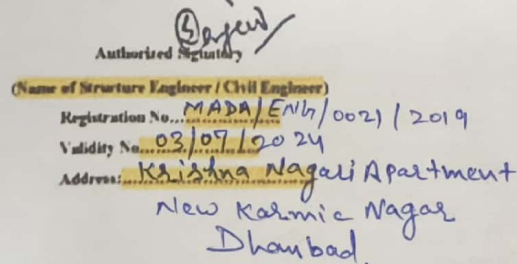 Authorized Signatory
(Name of Structure Engineer / Civil Engineer)
Registration No...MADA/ENG/0021/2019
Validity No...03/07/2024
Address:...Krishna Nagari Apartment
New Karmic Nagar
Dhanbad.